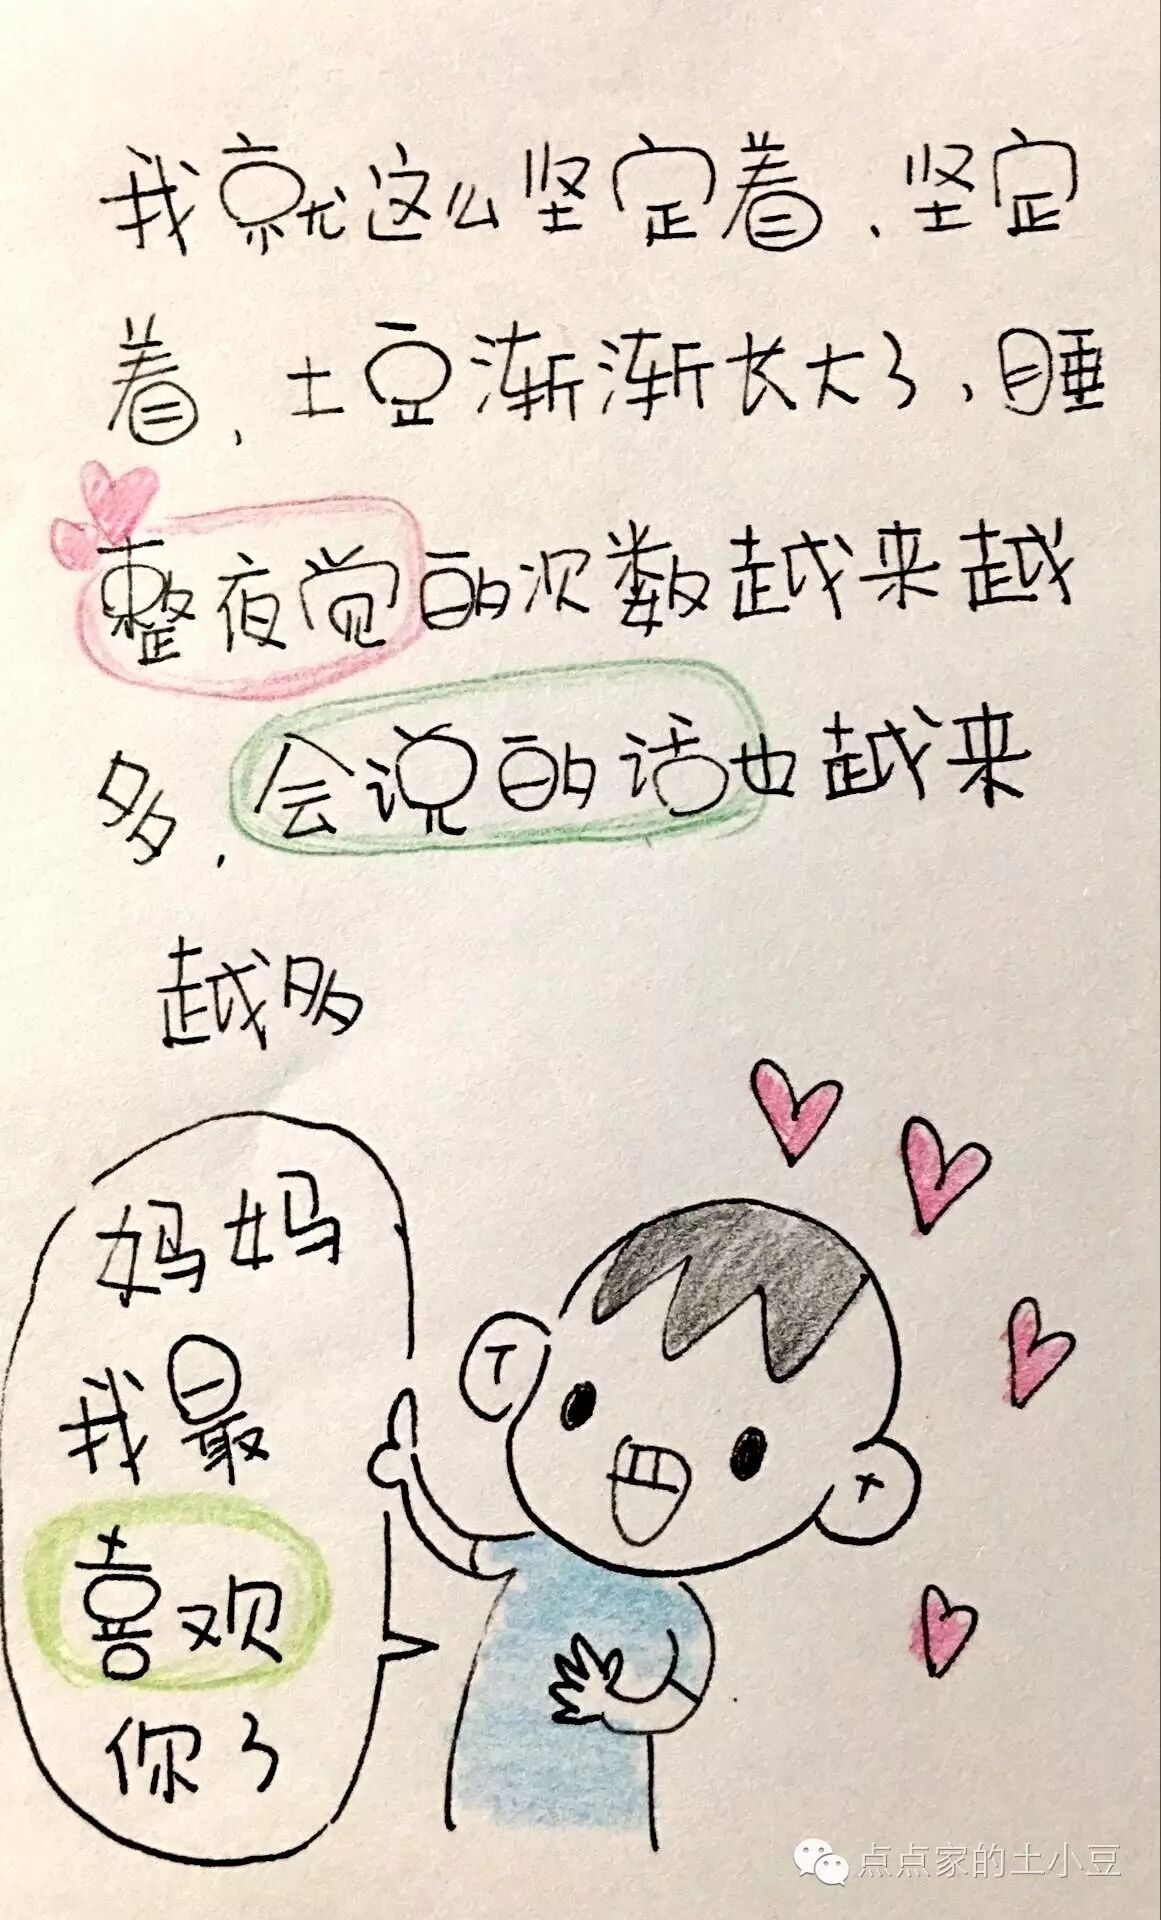 我就这么坚定着、坚定
着，土豆渐渐长大了、睡
整夜觉的次数越来越
多，会说的话也越来
越多
妈妈
我最
喜欢
你了
点点家的土小豆